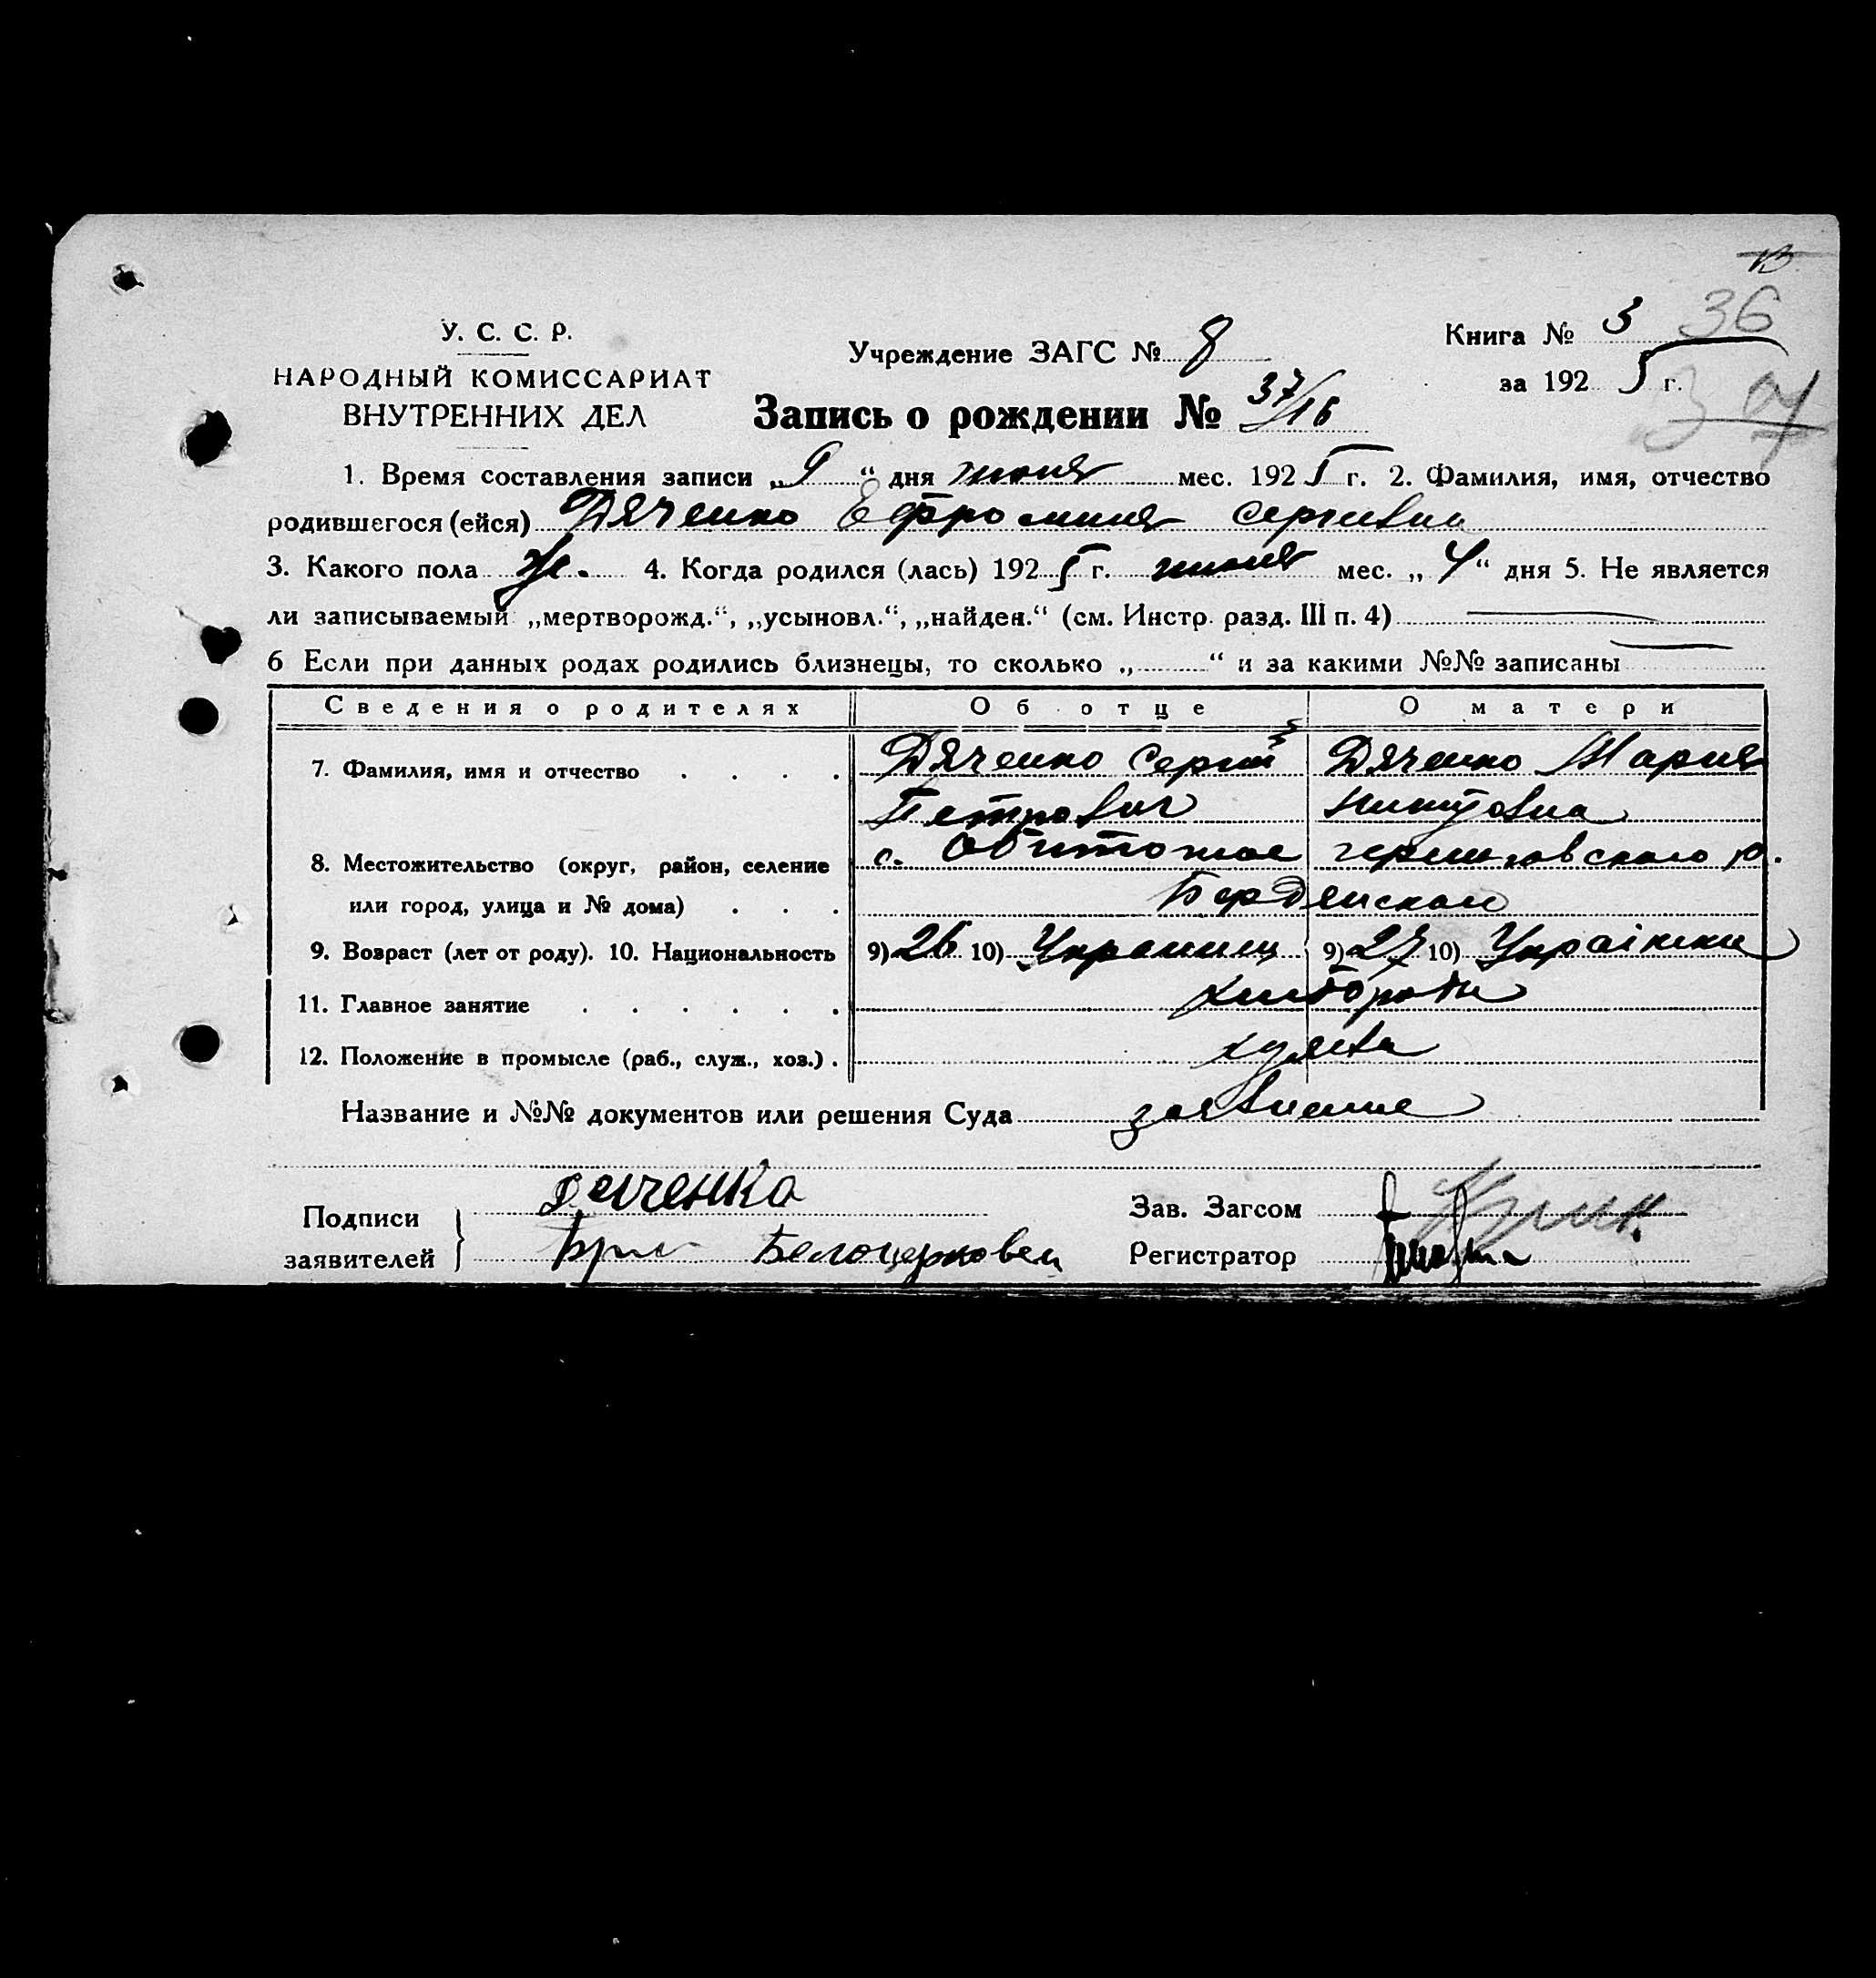 36
У. С. С. Р.
НАРОДНЫЙ КОМИССАРИАТ
ВНУТРЕННИХ ДЕЛ
Учреждение ЗАГС № 8
Книга № 3
за 1925 г.
Запись о рождении № 37/16
1. Время составления записи „9“ дня июня мес. 1925 г. 2. Фамилия, имя, отчество
родившегося (ейся) Дяченко Ефросиния
3. Какого пола ж. 4. Когда родился (лась) 1925 г. июня мес. „4“ дня 5. Не является
ли записываемый „мертворожд.“, „усыновл.“, „найден.“ (см. Инстр. разд. III п. 4)
6 Если при данных родах родились близнецы, то сколько „ “ и за какими №№ записаны
Сведения о родителях Об отце О матери
7. Фамилия, имя и отчество Дяченко Сергий Дяченко Мария
Петрович Никитовна
8. Местожительство (округ, район, селение с. Обиточное р.
или город, улица и № дома)
9. Возраст (лет от роду). 10. Национальность 9) 26 10) Украинец 9) 27 10) Українка
11. Главное занятие
12. Положение в промысле (раб., служ., хоз.).
Название и №№ документов или решения Суда заявление
Подписи Дяченко Зав. Загсом
заявителей Белоцерковец Регистратор